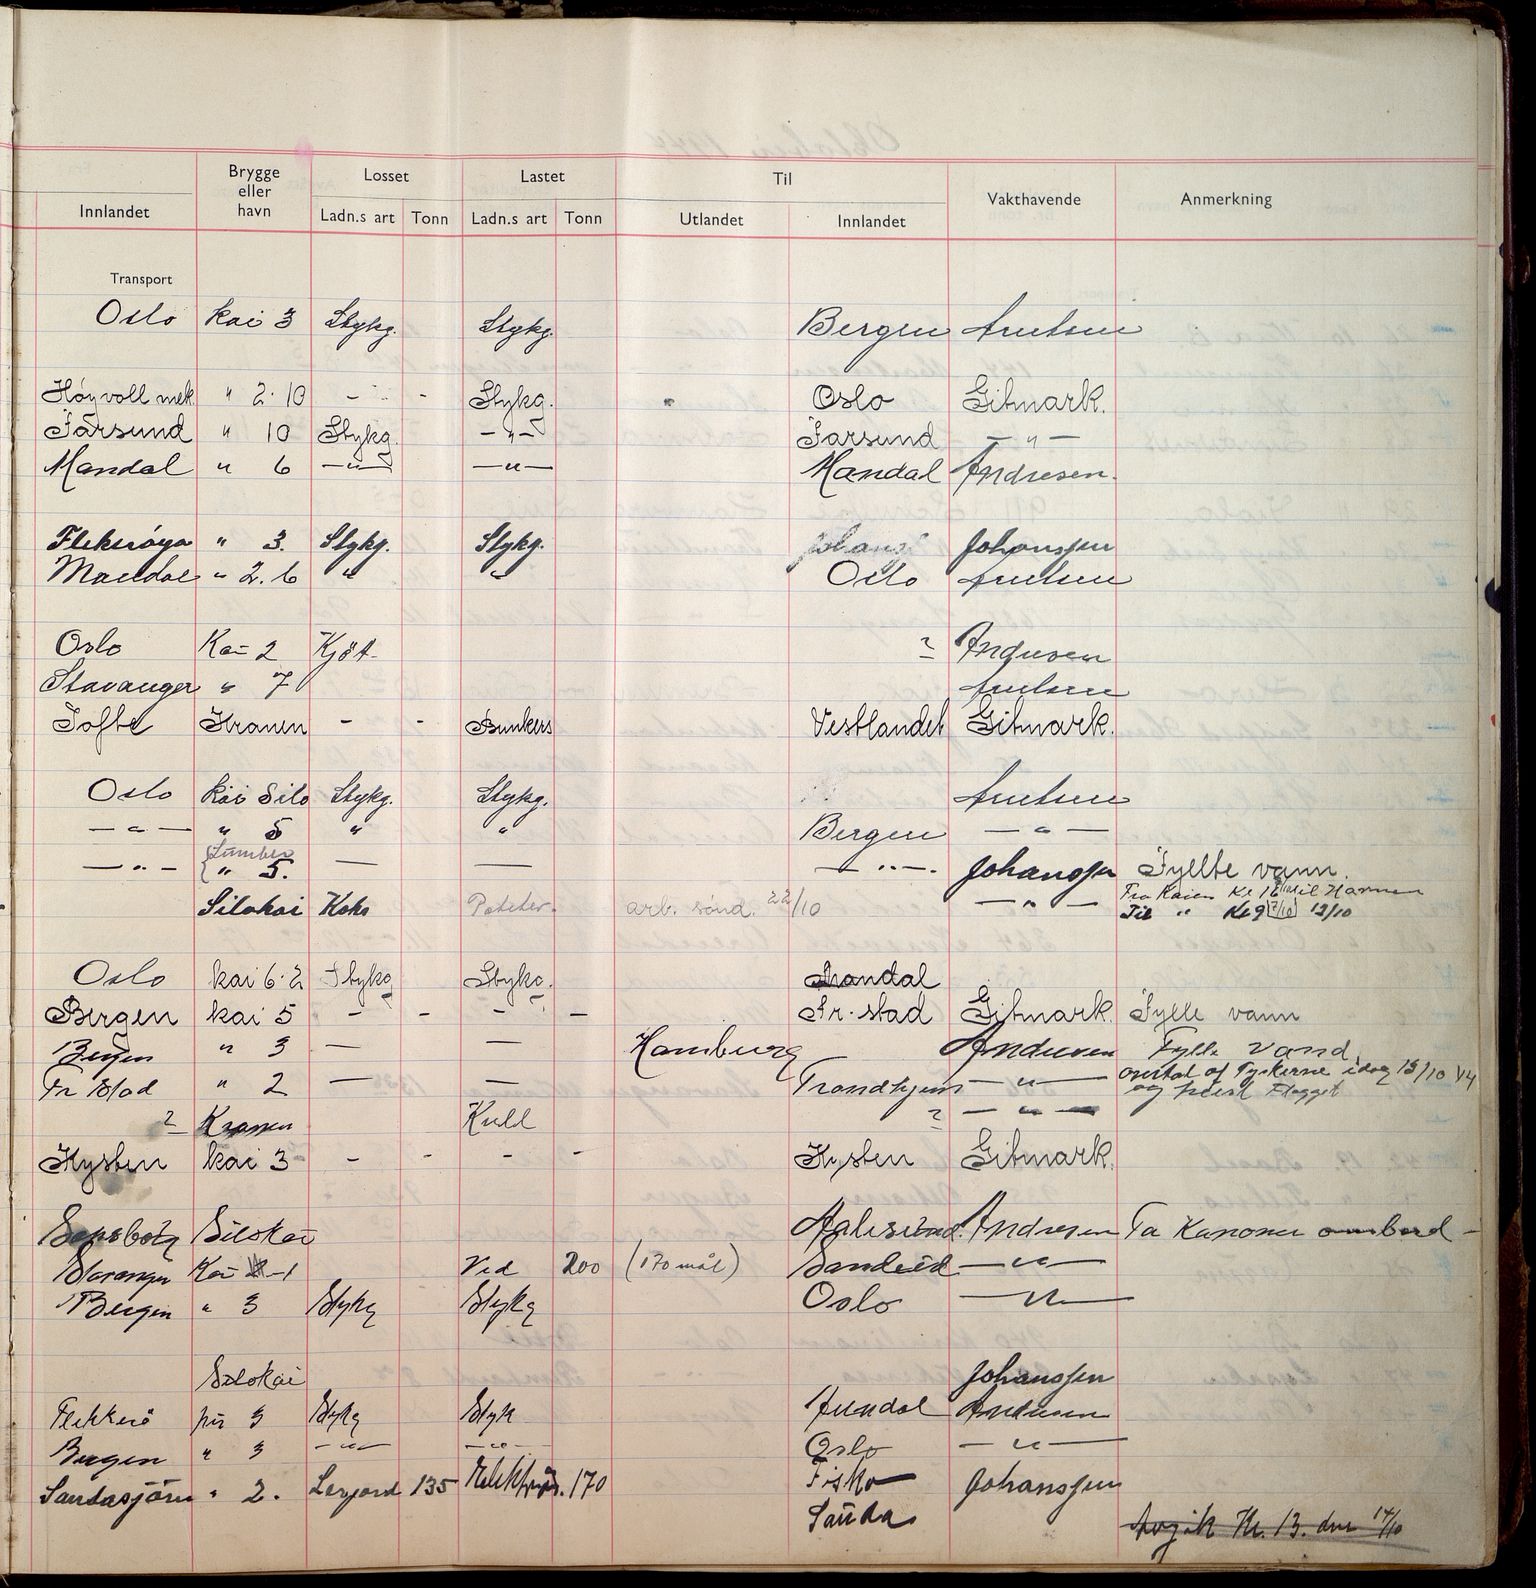 Brygge eller havn Losset Lastet Til Vakthavende Anmerkning
Innlandet Ladn.s art Tonn Ladn.s art Tonn Utlandet Innlandet
Transport
Oslo kai 3 Stykg. Stykg. Bergen Arntsen
Høyvoll mek. " 2·10 - - Stykg. Oslo Gitmark.
Farsund " 10 Stykg. -"- Farsund -"-
Mandal " 6 -"- -"- Mandal Andresen.
Flekerøya " 3. Stykg. Stykg. Johanssen
Mandal " 2. 6 " " Oslo Arntsen
Oslo Kai 2 Kjøt ? Andresen
Stavanger " 7 Arntsen
Tofte Kranen - - Bunkers Vestlandet Gitmark.
Oslo kai Silo Stykg. Stykg. Arntsen
-"- " 5 " " Bergen -"-
-"- " 5. — — -"- Johanssen Fyllte vann.
Silokai Koks Poteter. arb. sønd. 22/10 -"- Fra Kaien Kl 16 til Havnen
Til " Kl 9 13/10
Oslo kai 6·2 Stykg Stykg. Mandal
Bergen kai 5 - - - - Fr.stad Gitmark. Fylle vann
Bergen " 3 — — Hamburg Andresen Fylle vand,
Fr Stad " 2 — — Trondhjem -"- overtat af Tyskerne idag 13/10 44
og heist Flagget
? Kranen Kull ? -"-
Kysten kai 3 - - - - Kysten Gitmark.
Sarpsborg Silokai Aalesund. Andresen Ta Kanoner ombord -
Stavanger Kai 1 Ved 200 (170 mål) Sandeid -"-
Bergen " 3 Stykg Stykg Oslo -"-
Silokai Johanssen
Flekkerø pir 3 Stykg Styk Arendal Andresen
Bergen " 3 -"- -"- Oslo -"-
Sandasjøen " 2. Leirjord 135 170 Fisko Johanssen
Sauda
Avgik Kl. 13. den 14/10